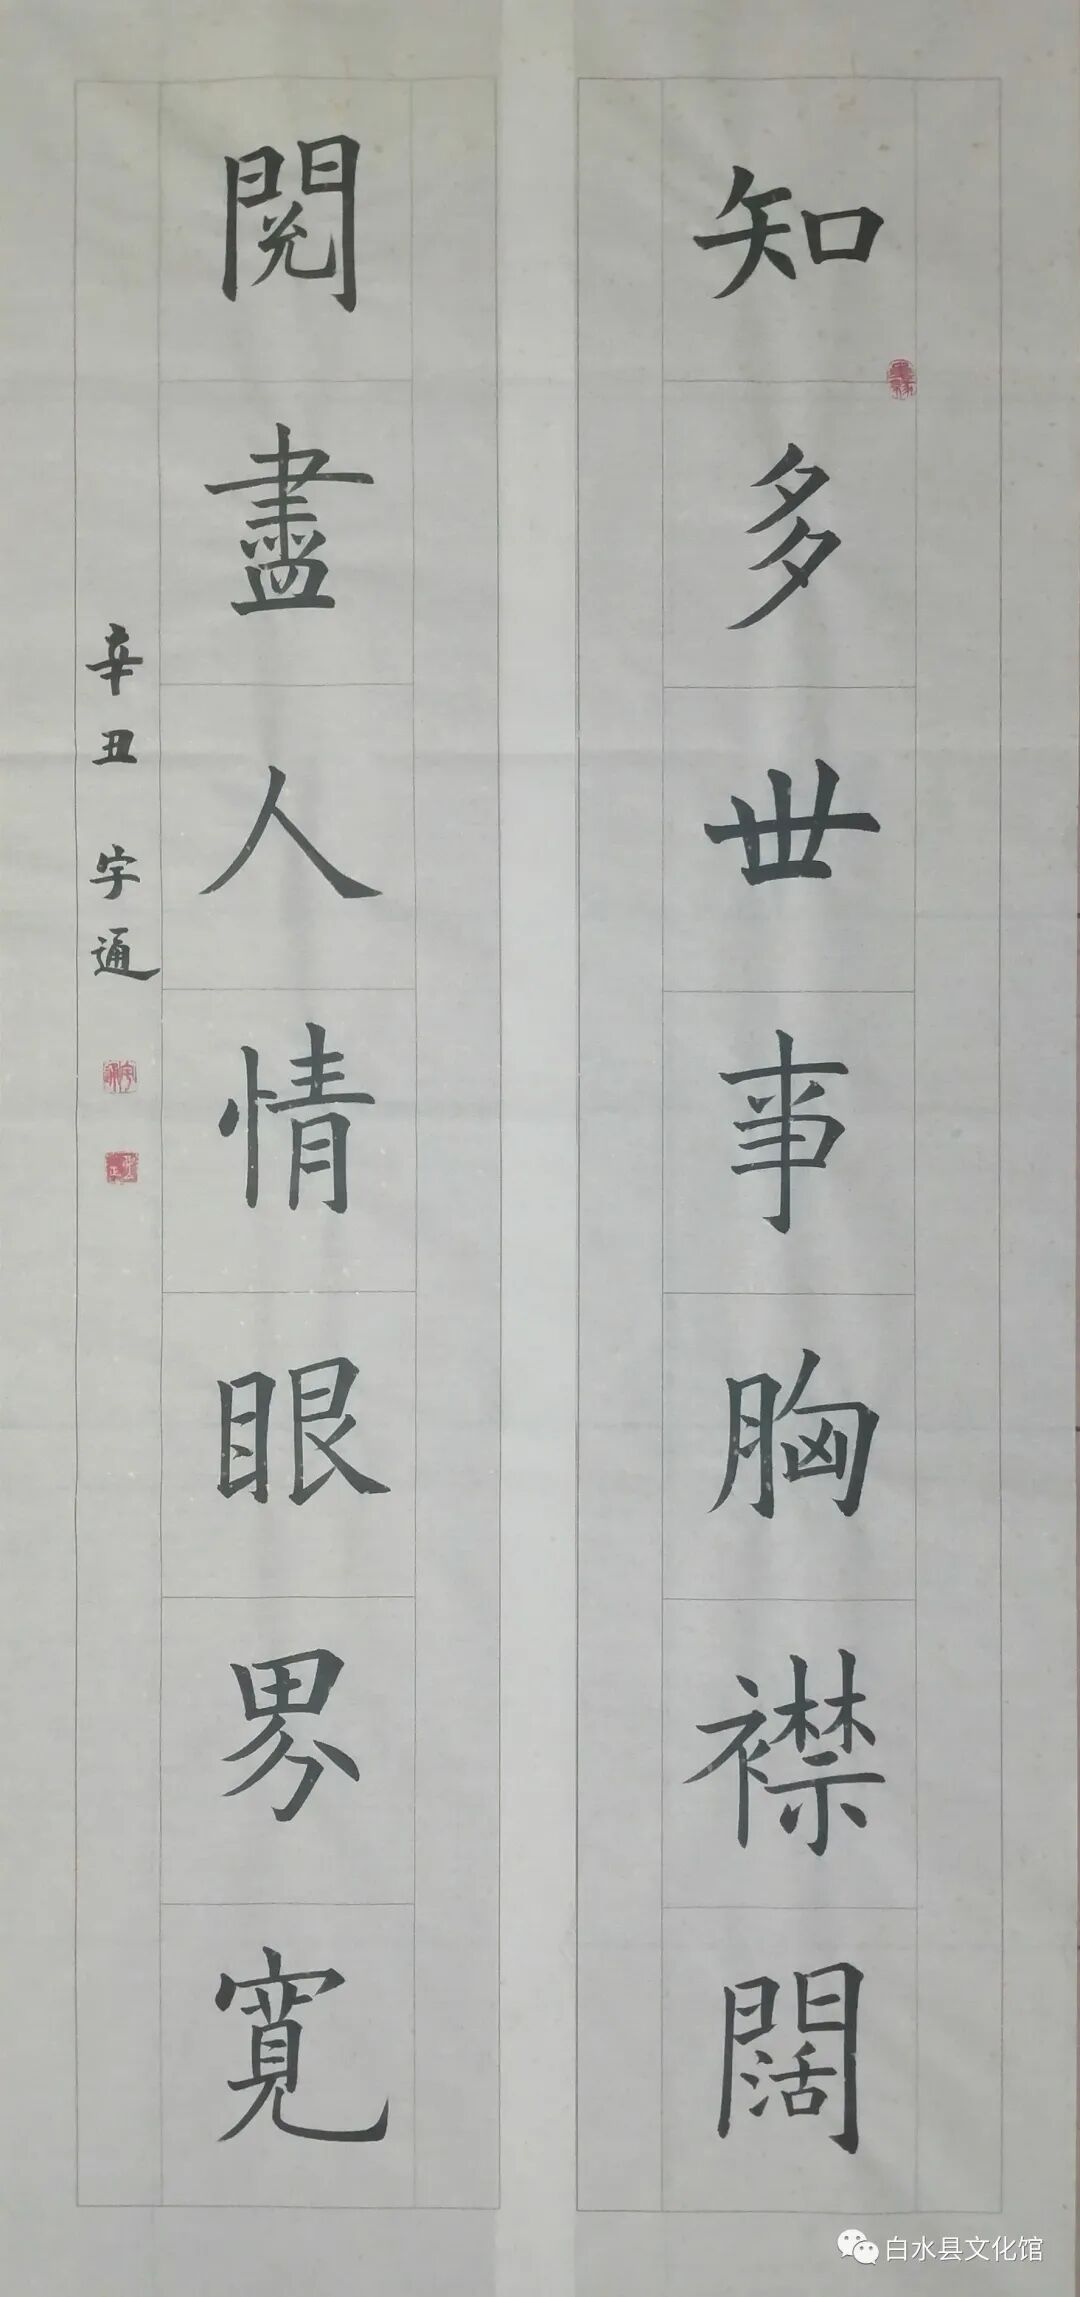 知多世事胸襟闊
閱盡人情眼界寬
辛丑 宇通
白水县文化馆